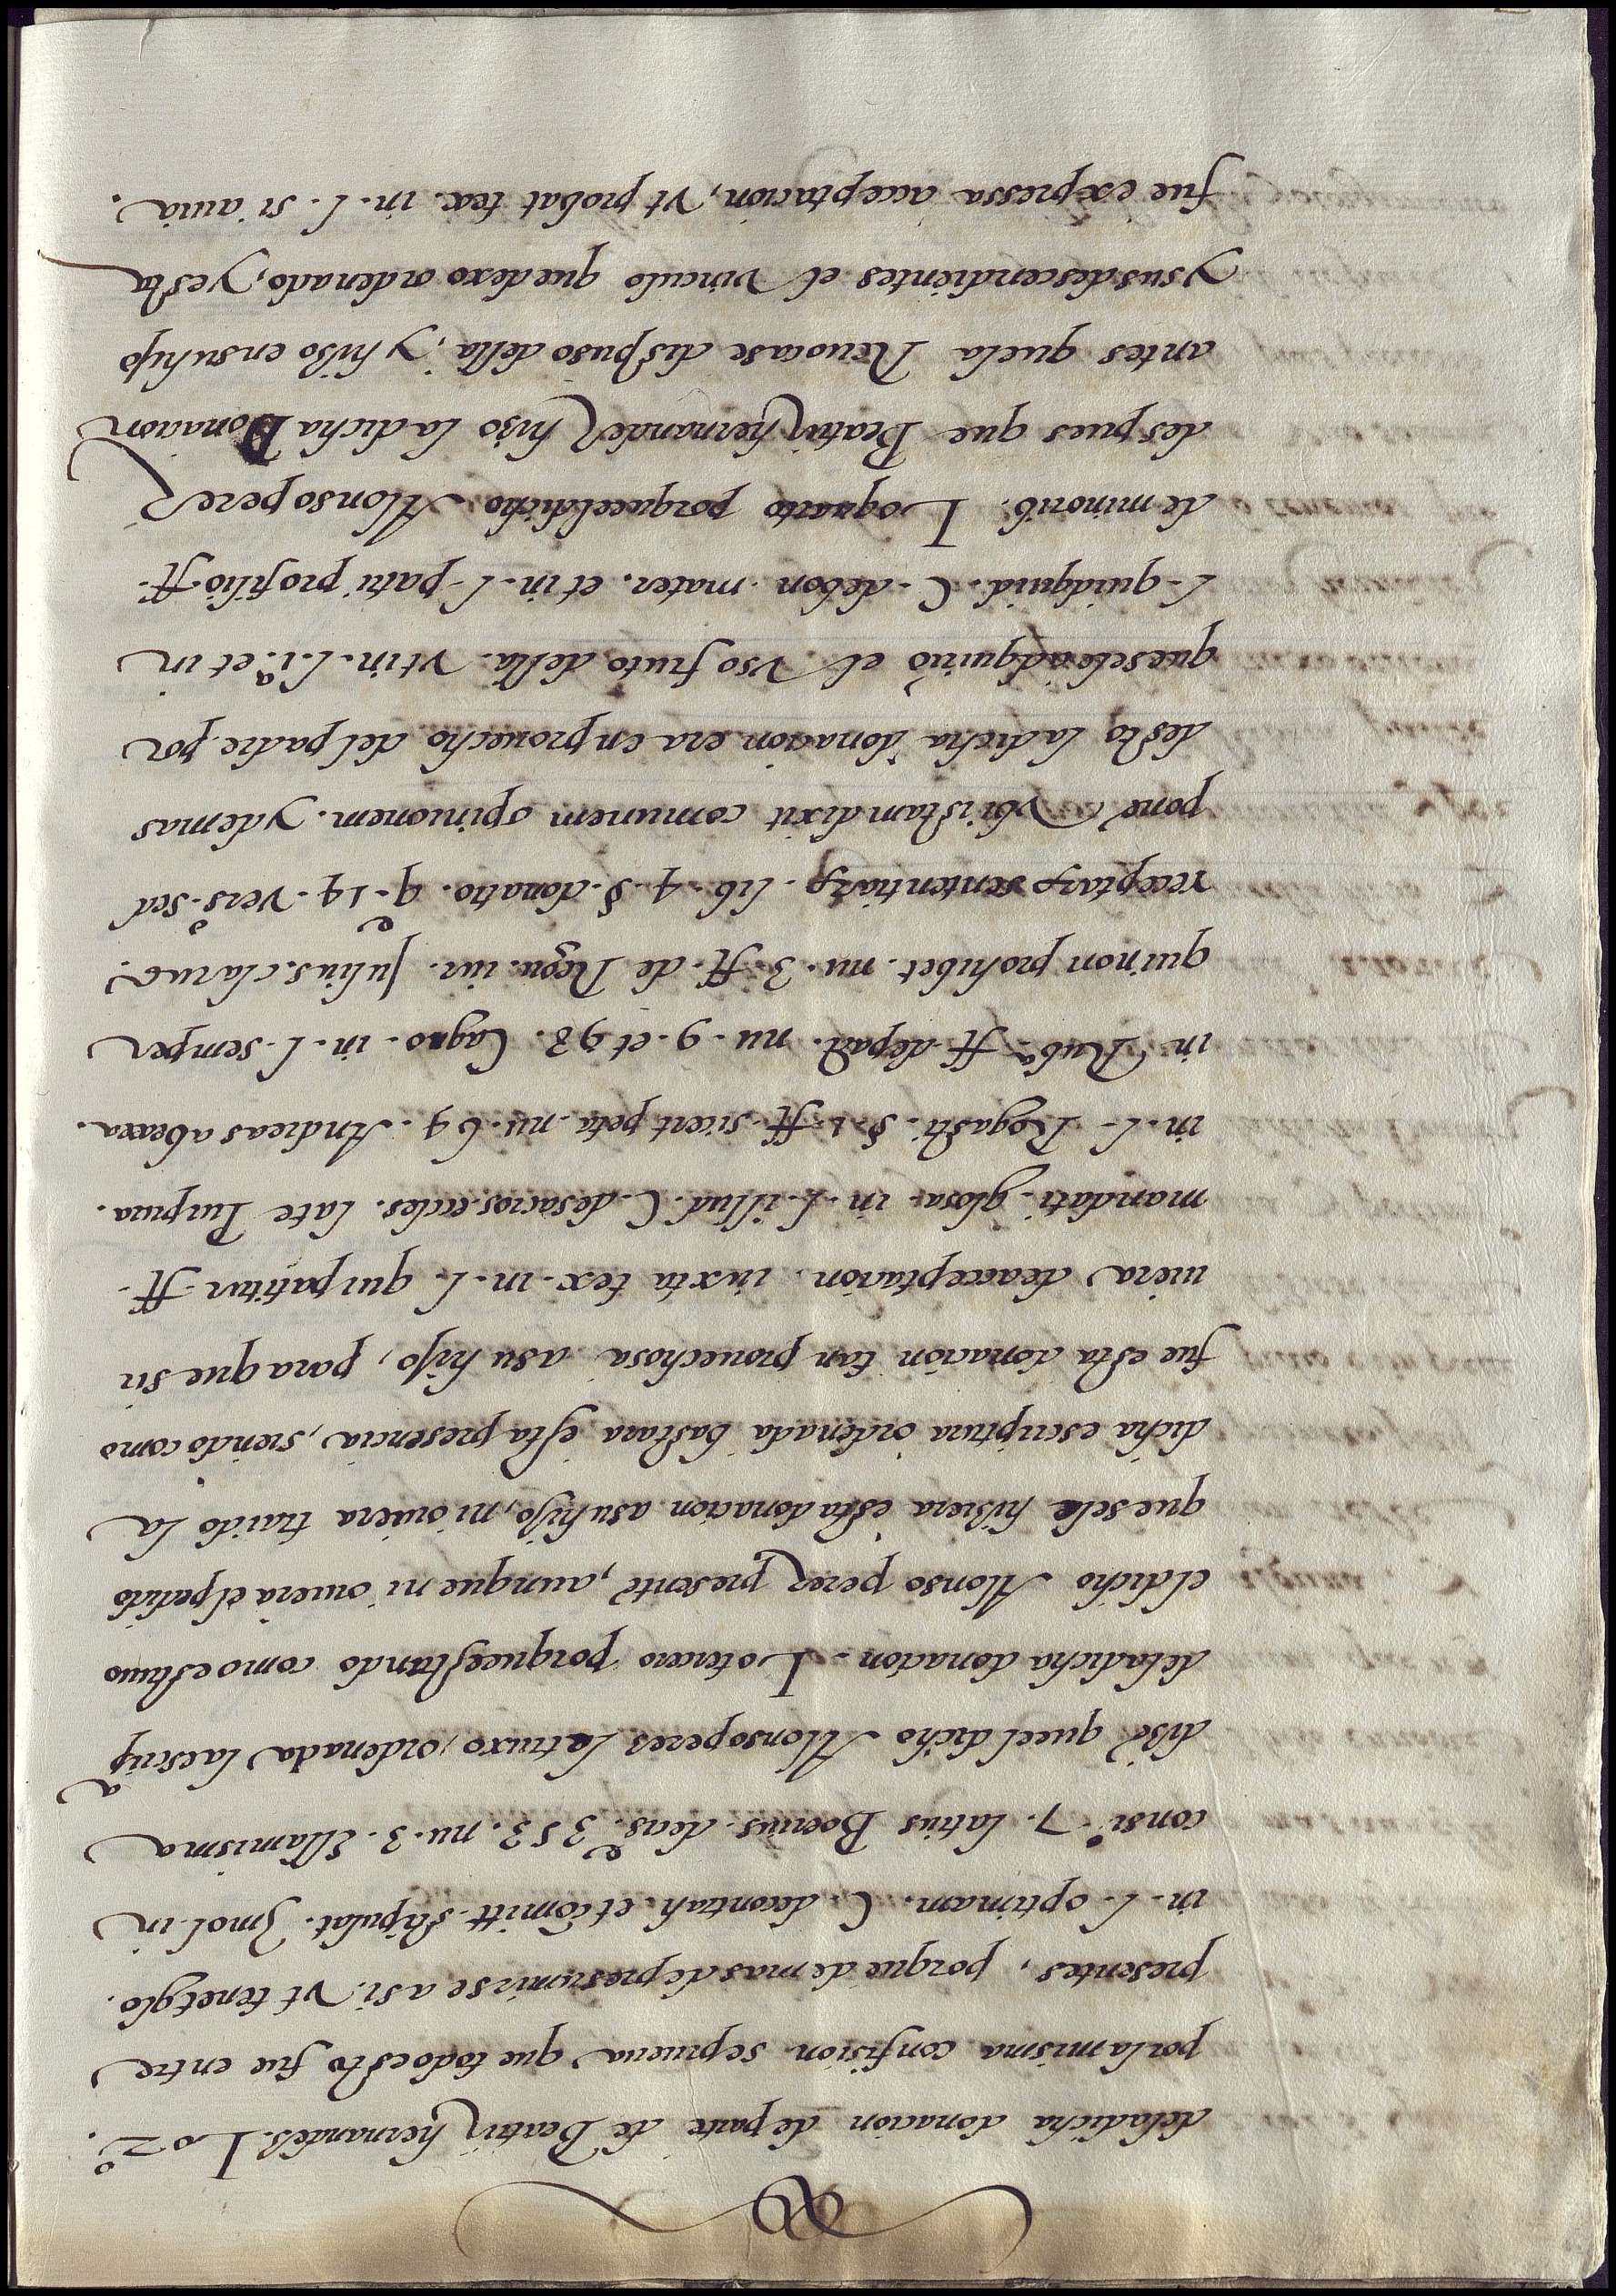 deladicha donacion departe de Beatriz hernandes. Lo 2º.
porlamisma confision seprueua que todoesto fue entre
presentes, porque demasdepresumirse asi. vt tenetglo.
in. l. optimam. C. decontrah. et comitt. stipulat. Jmol. in
consiº. 7. latius Boerius. decisᵉ. 353. nu. 3. Ellamisma
dise queel dicho Alonsoperes latruxo, ordenada laescripᵃ
deladicha donacion. Lotercero porqueestando comoestuuo
eldicho Alonso perez presente, aunque ni ouiera elpedido
quesele hisiera esta donacion asuhijo, ni ouiera traido la
dicha escriptura ordenada bastara esta presencia, siendo como
fue esta donacion tan prouechosa asu hijo, paraque sir
uiera deacceptacion iuxta tex. in. l. qui patitur. ff.
mandati. glosa. in. l. illud. C. desacros. eccles. late Purpura.
in. l. Rogasti. §. 1. ff. sicert peta. nu. 64. Andreas abexea.
in Rubᵃ ff. depact. nu. 9. et 98. Cagno. in. l. semper
quinon prohibet. nu. 3. ff. de Regu. iur. Julius. clarus.
receptarꝝ sententiarꝝ. lib. 4. §. donatio. qᵉ. 14. versᵒ. sed
pone vbi istam dixit comunem opinionem. ydemas
desto ladicha donacion era enprouecho delpadre por
quesele adquirio el vso fruto della. vtin. l. 1ᵃ. et in
l. quidquid. C. debon. mater. et in. l. patri profilio. ff.
de minorib. Loquarto porqueeldicho Alonsoperez
despues que Beatriz hernandez hizo ladicha Donacion
antes quela Reuocase dispuso della, y hiso ensuhijo
ysusdescendientes el vinculo quedexo ordenado, yesta
fue expressa acceptacion, vt probat tex. in. l. si auia.